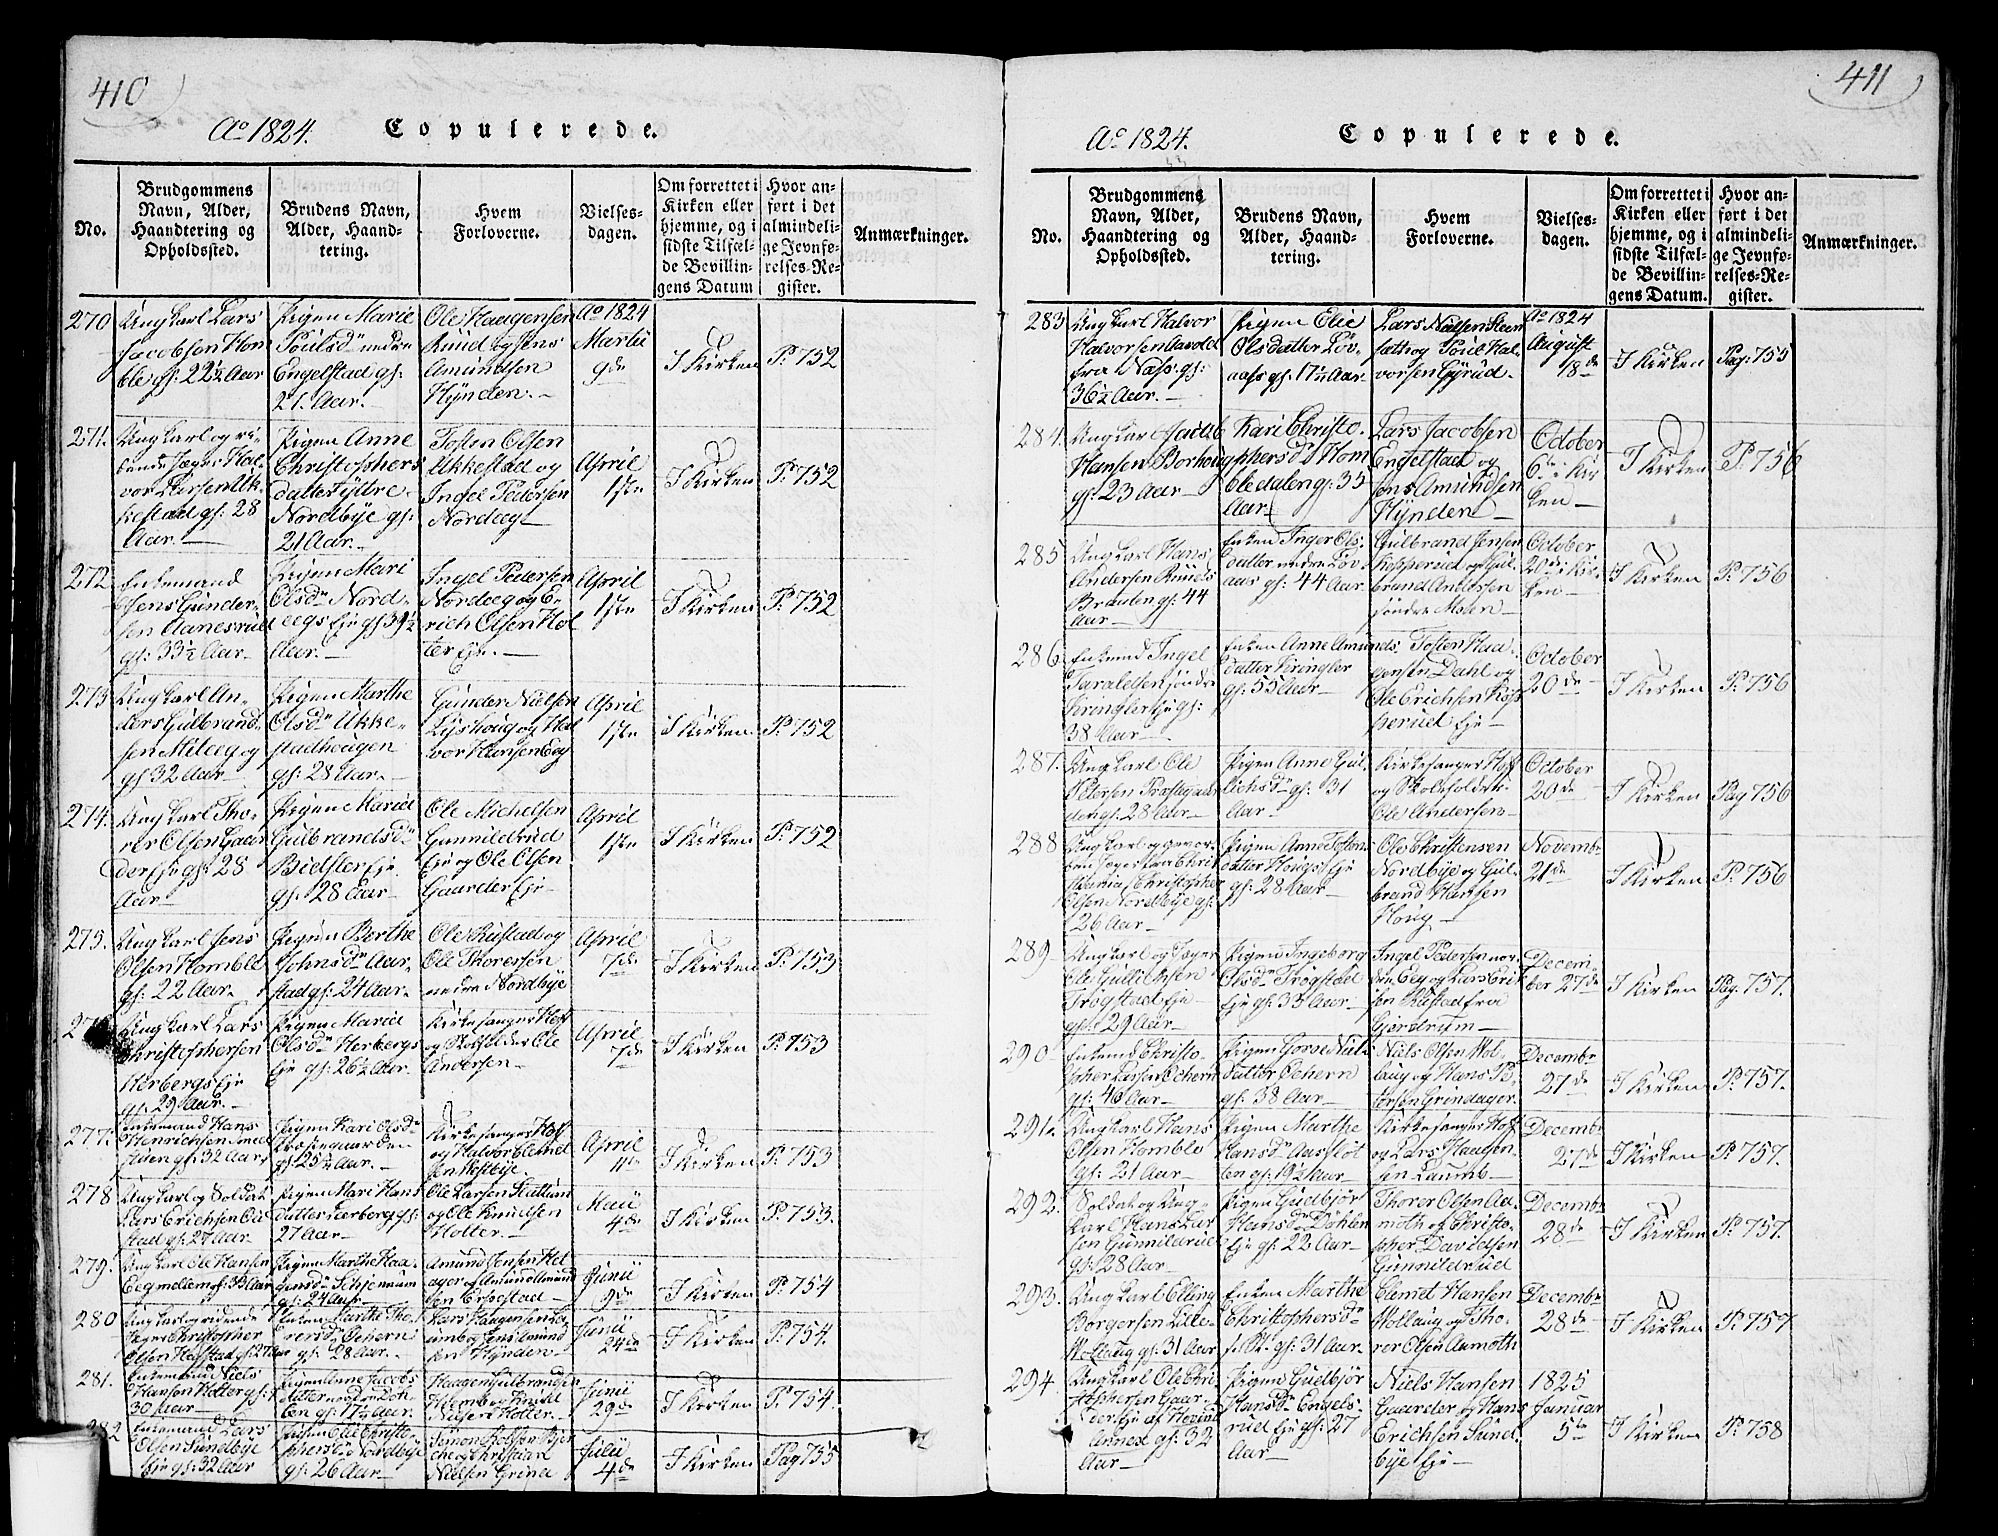 410
Ao 1824. Copulerede.
No.
Brudgommens Navn, Alder, Haandtering og Opholdssted.
Brudens Navn, Alder, Haandtering.
Hvem Forloverne.
Vielsesdagen.
Om forrettet i Kirken eller hjemme, og i sidste Tilfælde Bevillingens Datum
Hvor anført i det almindelige Jevnførelses-Register.
Anmærkninger.
270 Ungkarl Lars Jacobsen Homble gs: 22½ Aar
Pigen Marie Poulsdr nedre Engelstad gs: 21. Aar.
Ole Haagensen Ruud og Jens Amundsen Hynden.
Ao 1824 Martii 9de
I Kirken
P: 752
271. Ungkarl og ridende Jæger Halvor Larsen Ukkestad gs: 28 Aar.
Pigen Anne Christophersdatter Yttre Nordbye gs: 21 Aar
Tosten Olsen Ukkestad og Ingel Pedersen Nordeeg
April 1ste
I Kirken
P: 752
272. Enkemand Jens Gundersen Aanesrud gs: 33½ Aar
Pigen Mari Olsdr Nordeegs Eje gs 31½ Aar.
Ingel Pedersen Nordeeg og Erich Olsen Holter Eje.
April 1ste
I Kirken
P: 752
273 Ungkarl Anders Gulbrandsen Mileeg gs 32 Aar
Pigen Marthe Olsdr Ukkestadhougen gs: 28 Aar.
Gunder Nielsen Lyshoug og Halvor Hansen Eeg
April 1ste
I Kirken
P: 752
274. Ungkarl Thorer Olsen Gaarder Eje gs: 28 Aar
Pigen Marie Gulbrandsdr Bielsler Eje gs: 28 Aar.
Ole Michelsen Gunnildrud Eje og Ole Olsen Gaarder Eje
April 1ste
I Kirken
P: 752
275. Ungkarl Jens Olsen Homble gs: 22 Aar.
Pigen Berthe Johnsdr Aarstad gs: 24 Aar.
Ole Rustad og Ole Thoresen nedre Nordbye
April 7de
I Kirken
P: 753
Ungkarl Lars Christophersen Herbergs Eje gs: 29 Aar.
Pigen Marie Olsdr Herbergs Eje gs: 26½ Aar.
Kirkesanger Hoff og Skoleholder Ole Andersen
April 7de
I Kirken
P: 753
277. Enkemand Hans Henrichsen gs: 32 Aar
Pigen Kari Olsdr gs: 25½ Aar.
Kirkesanger Hoff og Halvor Nestbye.
April 11te
I Kirken
P: 753
278 Ungkarl og Soldat Lars Erichsen gs: 27 Aar
Pigen Mari Hansdatter Leerberg gs: 27 Aar
Ole Larsen og Ole Knudsen Holter.
Maii 4de
I Kirken
P: 753.
279. Ungkarl Ole Hansen Eeg mellem
Pigen Marthe Haagensdr gs: 24 Aar
Amund Jensen og Amund Erpestad
Junii 9de
I Kirken
P: 754
280 Ungkarl og ridende Jæger Christopher Olsen
Enken Marthe Thorersdr Ochern gs: 28 Aar.
Lars Haagensen og Jens Amundsen Hynden.
Junii 24de
I Kirken
P: 754.
281. Enkemand Niels Hansen Holter gs: 30 Aar
Pigen Anne Jacobsdatter gs: 17½ Aar.
Haagen Gulbrandsen og Knud Nielsen Holter.
Junii 29de
I Kirken
P: 754.
282 Enkemand Lars Olsen Sundbye Eje gs: 32 Aar
Pigen Elie Christophersdr Nordbye gs: 26 Aar
og Christian Nielsen Grina
Julii 4de
I Kirken
Pag 755
411
Ao 1824. Copulerede.
No.
Brudgommens Navn, Alder, Haandtering og Opholdssted.
Brudens Navn, Alder, Haandtering.
Hvem Forloverne.
Vielsesdagen.
Om forrettet i Kirken eller hjemme, og i sidste Tilfælde Bevillingens Datum.
Hvor anført i det almindelige Jevnførelses-Register.
Anmærkninger.
283 Ungkarl Halvor Halvorsen fra Næss. gs: 36½ Aar.
Pigen Elie Olsdatter Løvaass gs: 17½ Aar.
Lars Nielsen og Poul Halvorsen Gjyrud.
Ao 1824 August 18de
I Kirken
Pag: 755
284. Ungkarl Jacob Hansen Borhoug gs: 23 Aar
Kari Christophersdr Hombledalen gs: 35 Aar
Lars Jacobsen Engelstad og Jens Amundsen Hynden
October 6te i Kirken
I Kirken
P: 756
285 Ungkarl Hans Andersen Ruuds Braaten gs: 44 Aar
Enken Inger Olsdatter nedre Løvaas gs: 44 Aar
Gulbrand Jensen Kopperud og Gulbrand Andersen søndre Moen
October 20de i Kirken
I Kirken
P: 756
286. Enkemd Ingel Taraldsen søndre Kringler Eje gs: 38 Aar
Enken Anne Amundsdatter Kringler gs: 55 Aar
Tosten Haagensen Dahl og Ole Erichsen Kopperud Eje
October 20de
I Kirken
P: 756
287. Ungkarl Ole Petersen gs: 28 Aar
Pigen Anne Gulichsdr gs: 31 Aar
Kirkesanger Hoff og Skoleholder Ole Andersen
October 20de
I Kirken
Pag 756
288 Christopher Olsen Nordbye gs: 26 Aar
Pigen Anne Tostensdatter Hougs Eje gs: 28 Aar
Ole Christensen Nordbye og Gulbrand Hansen Houg
Novembr 21de
I Kirken
P: 756
289 Ungkarl og Jæger Ole Gullichsen Trøgstad Eje gs: 29 Aar
Pigen Ingeborg Olsdr Trøgstad Eje gs: 33 Aar
Ingel Pedersen nordre Eeg og Lars Erichsen Rustad fra Gjerdrum
December 27de
I Kirken
Pag. 757.
290 Enkemd Christopher Larsen Ochern gs: 46 Aar
Pigen Gorse Nielsdatter Ochern gs: 38 Aar
Niels Olsen Wollaug og Hans Petersen Grindager
Decembr 27de
I Kirken
P: 757.
291. Ungkarl Hans Olsen Homble gs: 21 Aar
Pigen Marthe Hansdr gs: 19½ Aar
Kirkesanger Hoff og Lars Haagensen Laumb
Decembr 27de
I Kirken
P: 757.
292. Soldat og Ungkarl Hans Larsen Gunnildrud gs: 28 Aar
Pigen Gudbjør Hansdr Døhlen Eje gs: 22 Aar
Thorer Olsen Aamoth og Christopher Davidsen Gunnildrud
Decembr 28de
I Kirken
P: 757.
293. Ungkarl Elling Borgersen Lille Wollaug gs: 31 Aar
Enken Marthe Christophersdr gs: 31 Aar.
Clemet Hansen Wollaug og Thorer Olsen Aamoth
Decembr 28de
I Kirken
P: 757
294. Ungkarl Ole Christophersen Gaarder Eje gs: 32 Aar
Pigen Gudbjør Hansdr Engelsrud Eje gs: 27 Aar
Niels Hansen Gaarder og Hans Erichsen Sundbye Eje
1825 Januar 5te
I Kirken
P: 758